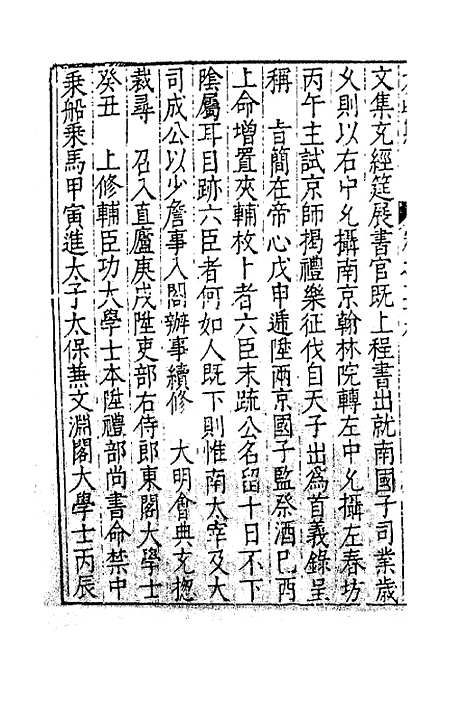 文集充經筵展書官既上程書出就南國子司業歲
乆則以右中允攝南京翰林院轉左中允攝左春坊
丙午主試京師揭禮樂征伐自天子出為首義錄呈
稱　旨簡在帝心戊申遞陞兩京國子監祭酒巳酉
上命増置夾輔枚卜者六臣末疏公名留十日不下
陰屬耳目跡六臣者何如人既下則惟南太宰及大
司成公以少詹事入閣辦事續修　大明會典充揔
裁尋　召入直廬庚戌陞吏部右侍郎東閣大學士
癸丑　上修輔臣功大學士本陞禮部尚書命禁中
乗船乗馬甲寅進太子太保兼文淵閣大學士丙辰